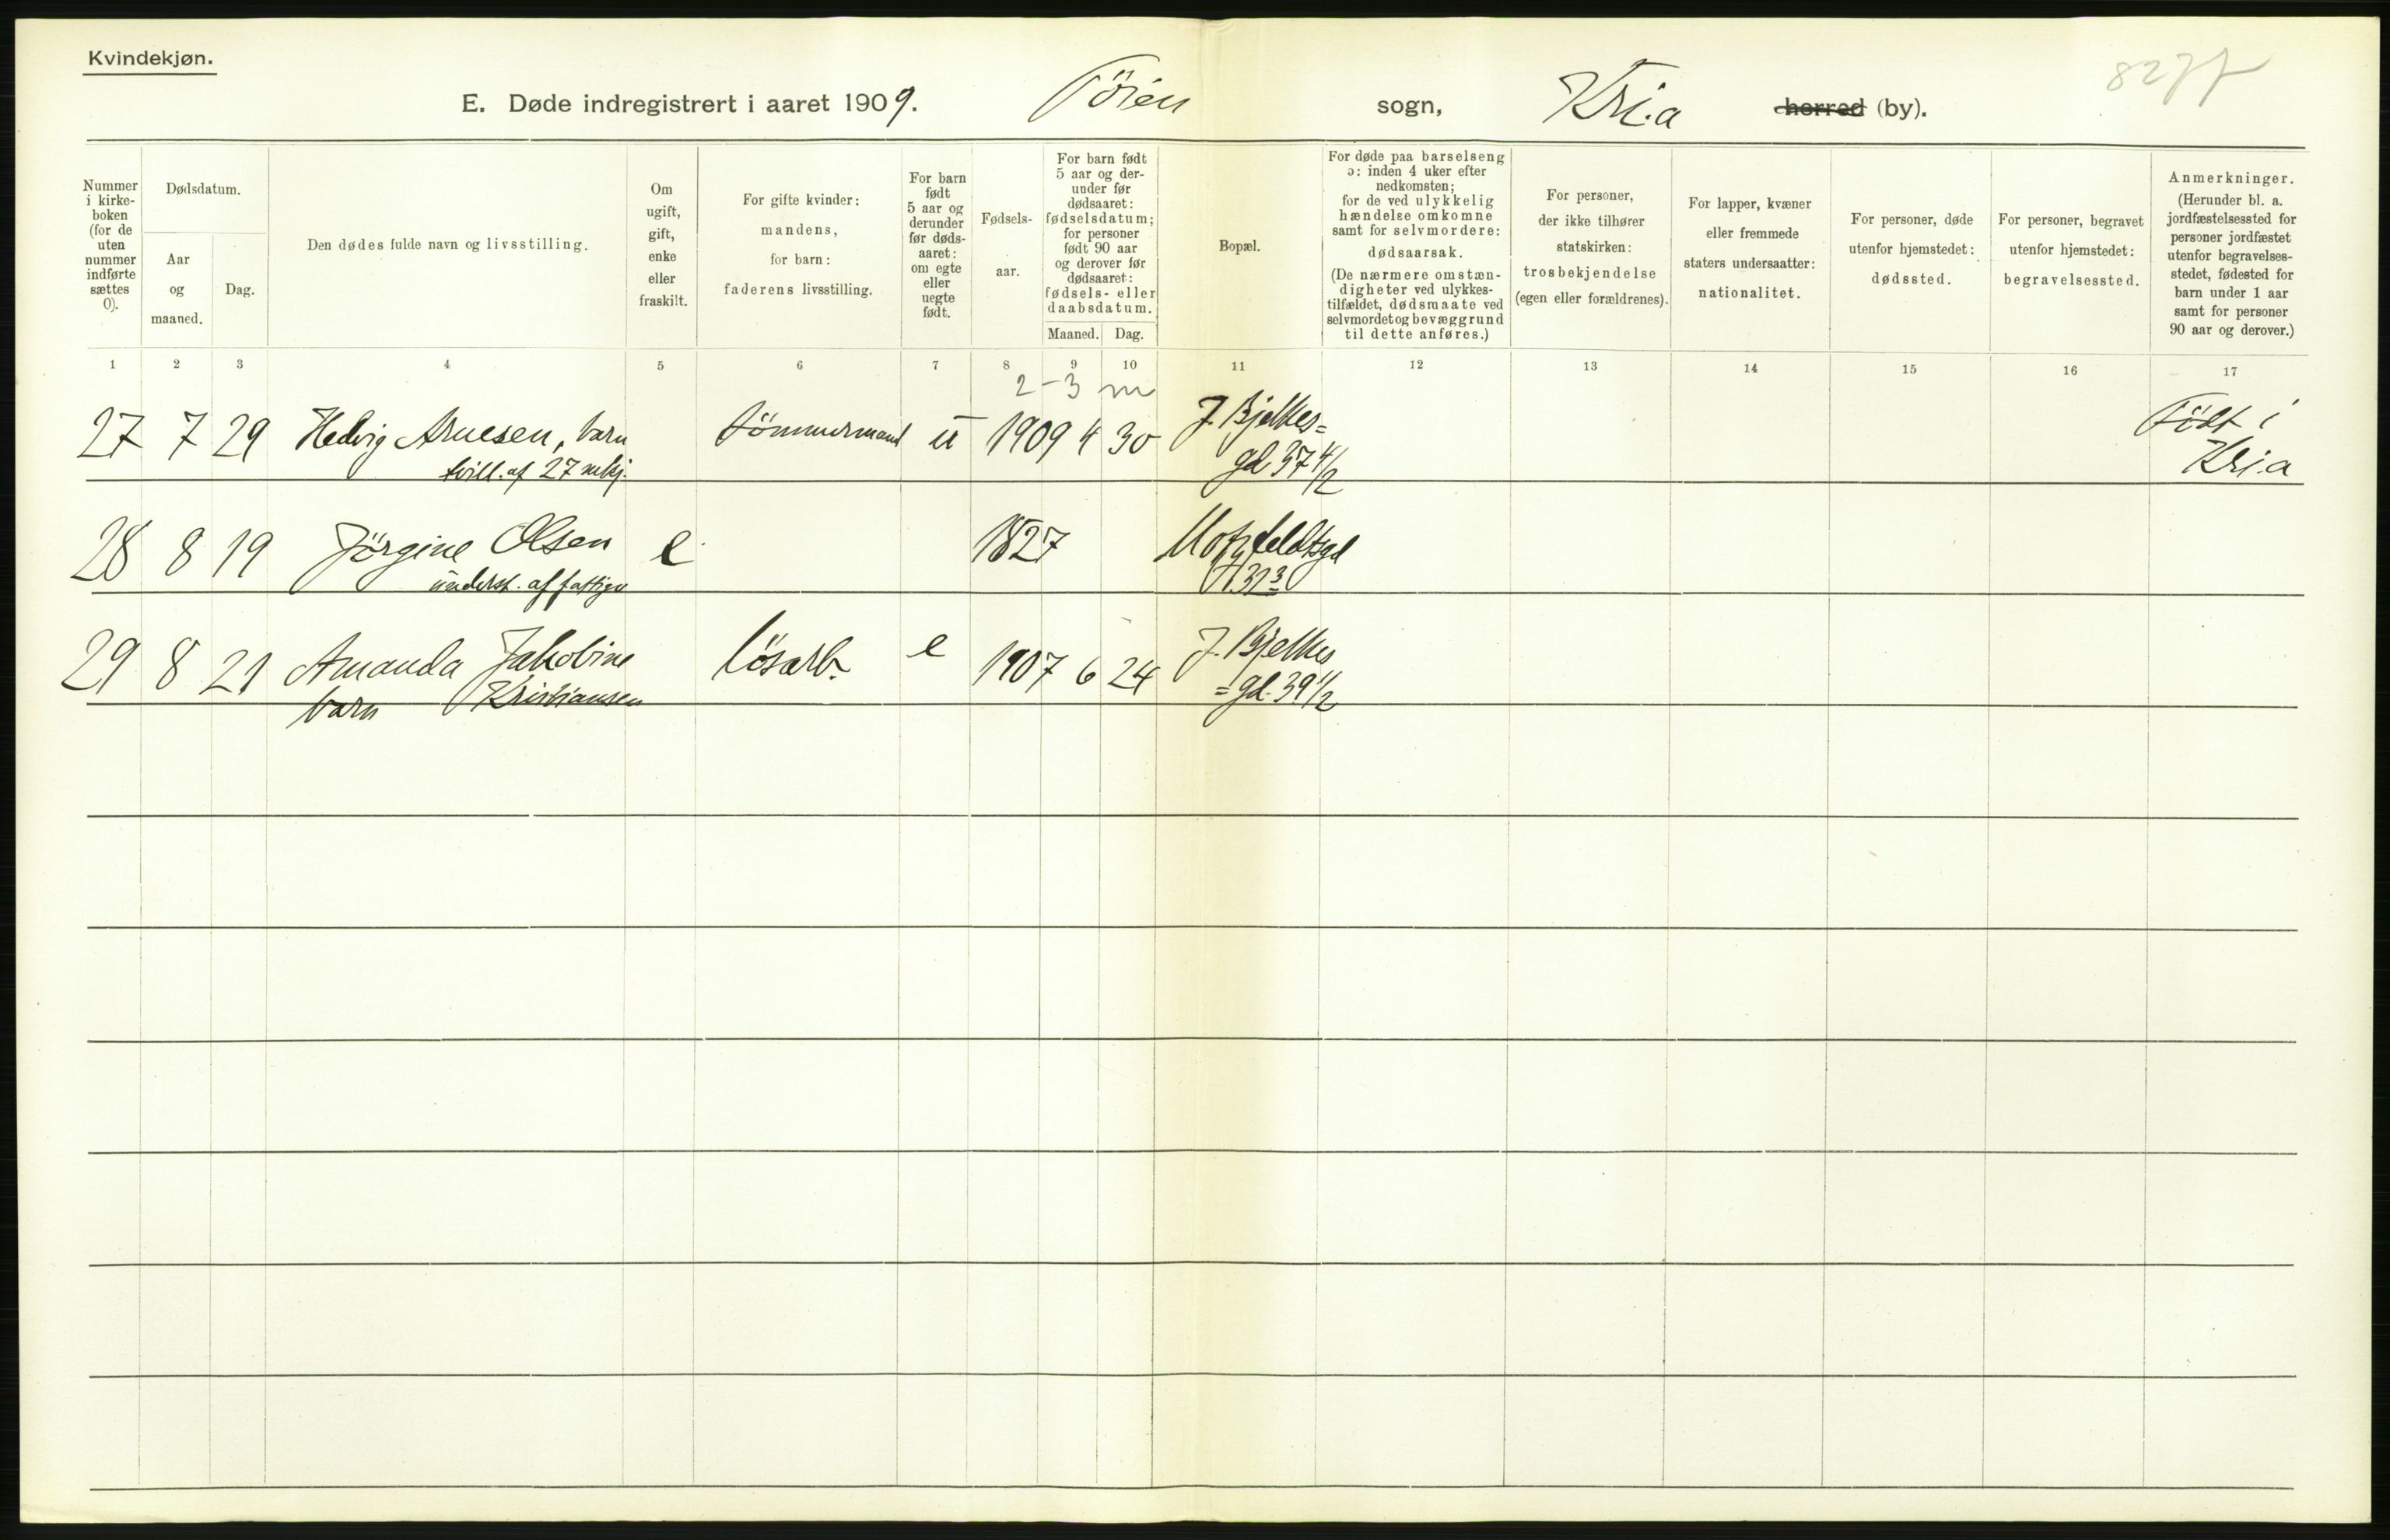 Kvindekjøn.
E. Døde indregistrert i aaret 1909. Töien sogn, Kria herred (by).
Nummer i kirke- boken (for de uten nummer indførte sættes 0).
Dødsdatum.
Aar og maaned.
Dag.
Den dødes fulde navn og livsstilling.
Om ugift, gift, enke eller fraskilt.
For gifte kvinder: mandens, for barn: faderens livsstilling.
For barn født 5 aar og derunder før døds- aaret: om egte eller uegte født.
Fødsels- aar.
For barn født 5 aar og der- under før dødsaaret: fødselsdatum; for personer født 90 aar og derover før dødsaaret: fødsels- eller daabsdatum.
Maaned. Dag.
Bopæl.
For døde paa barselseng ɔ: inden 4 uker efter nedkomsten; for de ved ulykkelig hændelse omkomne samt for selvmordere: dødsaarsak. (De nærmere omstæn- digheter ved ulykkes- tilfældet, dødsmaate ved selvmordet og bevæggrund til dette anføres.)
For personer, der ikke tilhører statskirken: trosbekjendelse (egen eller forældrenes).
For lapper, kvæner eller fremmede staters undersaatter: nationalitet.
For personer, døde utenfor hjemstedet: dødssted.
For personer, begravet utenfor hjemstedet: begravelsessted.
Anmerkninger. (Herunder bl. a. jordfæstelsessted for personer jordfæstet utenfor begravelses- stedet, fødested for barn under 1 aar samt for personer 90 aar og derover.)
1 2 3 4 5 6 7 8 9 10 11 12 13 14 15 16 17
2-3 m
27 7 29 Hedvig Arnesen, barn tömmermand u 1909 4 30 J. Bjelkes= Födt i
tvill. af 27 mkj. gd 37 4/2 Kri.a
28 8 19 Jörgine Olsen e 1827 Motzfeldtsgd
underst. af fattigv 31 3
29 8 21 Amanda Jakobine lösarb. e 1907 6 24 J. Bjelkes
barn Kristiansen =gd. 39 1/2